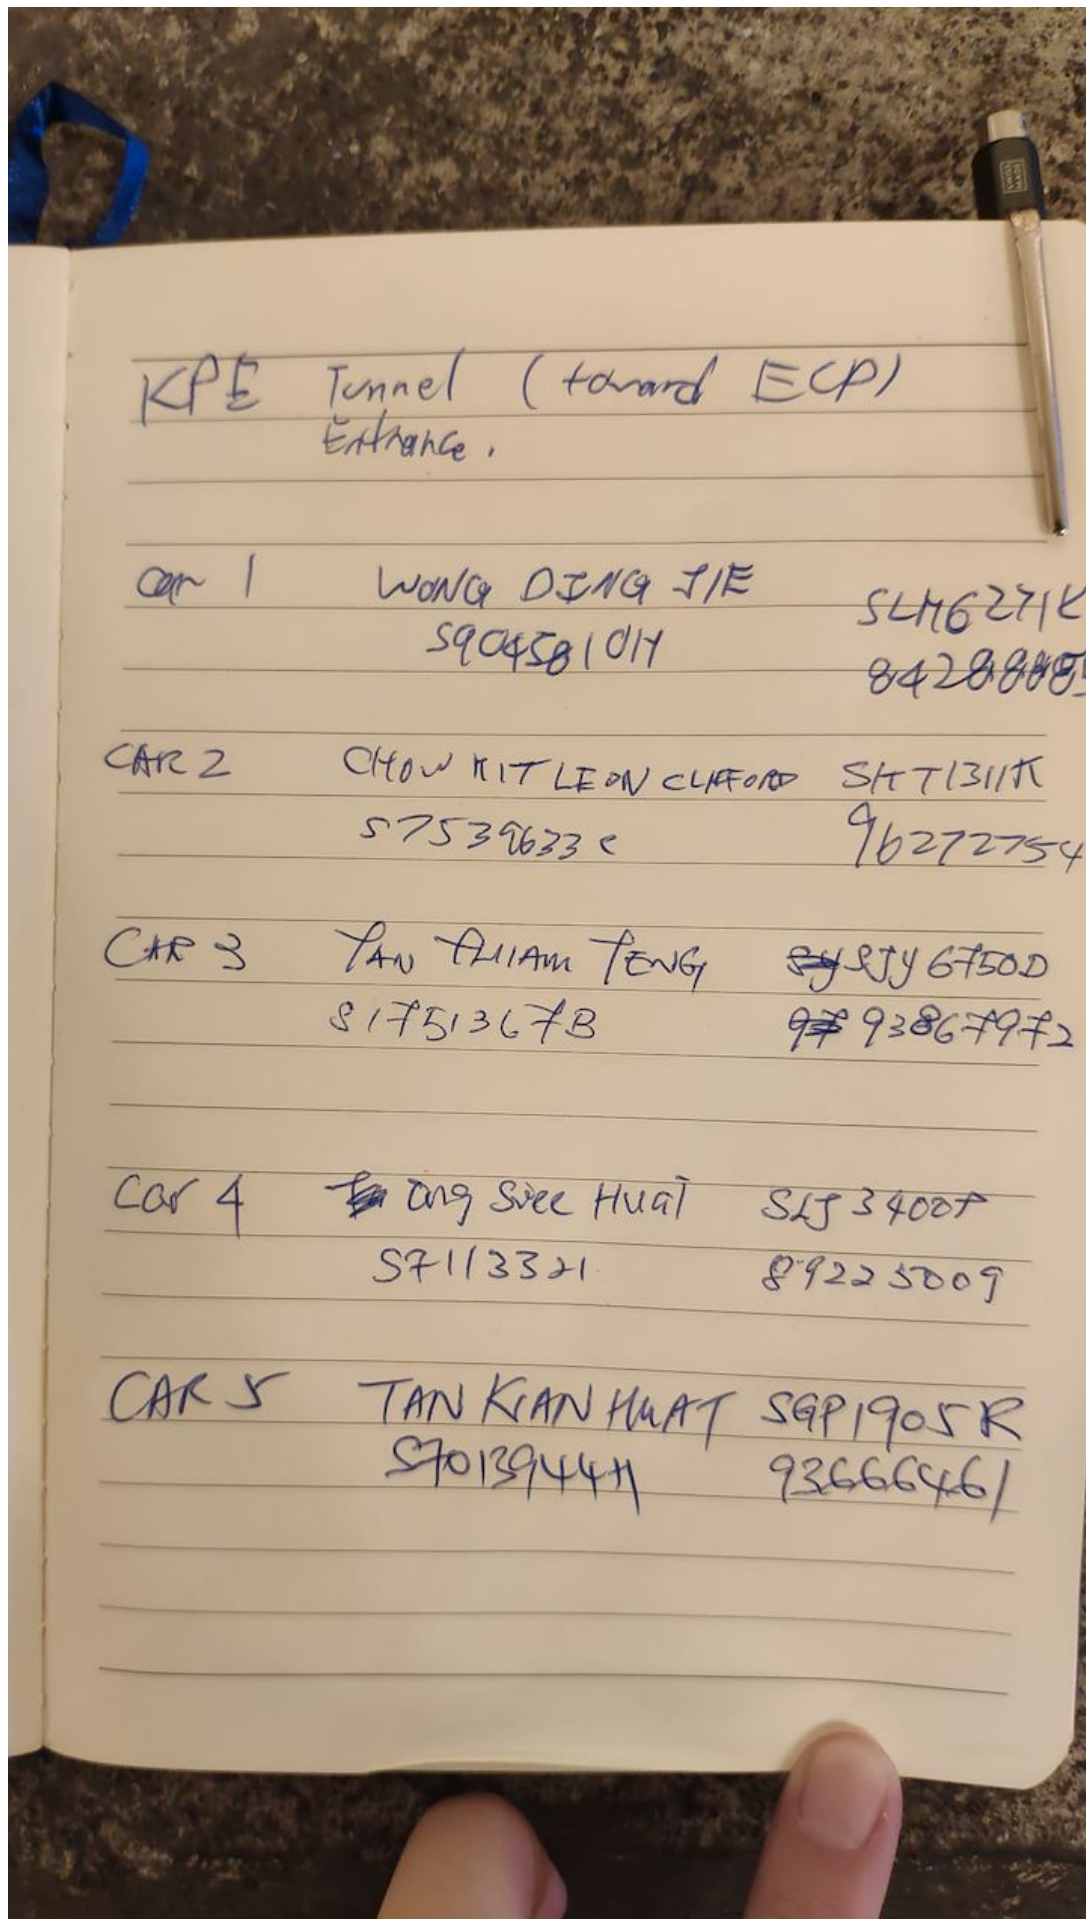 KPE Tunnel (toward ECP)
Entrance.
Car 1 WONG DING JIE SLM6271K
S9045810H 8428888
CAR 2 CHOW KIT LEON CLIFFORD SKT1311K
S7539633C 96272754
CAR 3 TAN THIAM TENG SJY6750D
S1751367B 93867972
Car 4 Ong Swee Huat SLJ3400P
S7113321 89225009
CAR 5 TAN KIAN HUAT SGP1905R
S7013944H 93666461